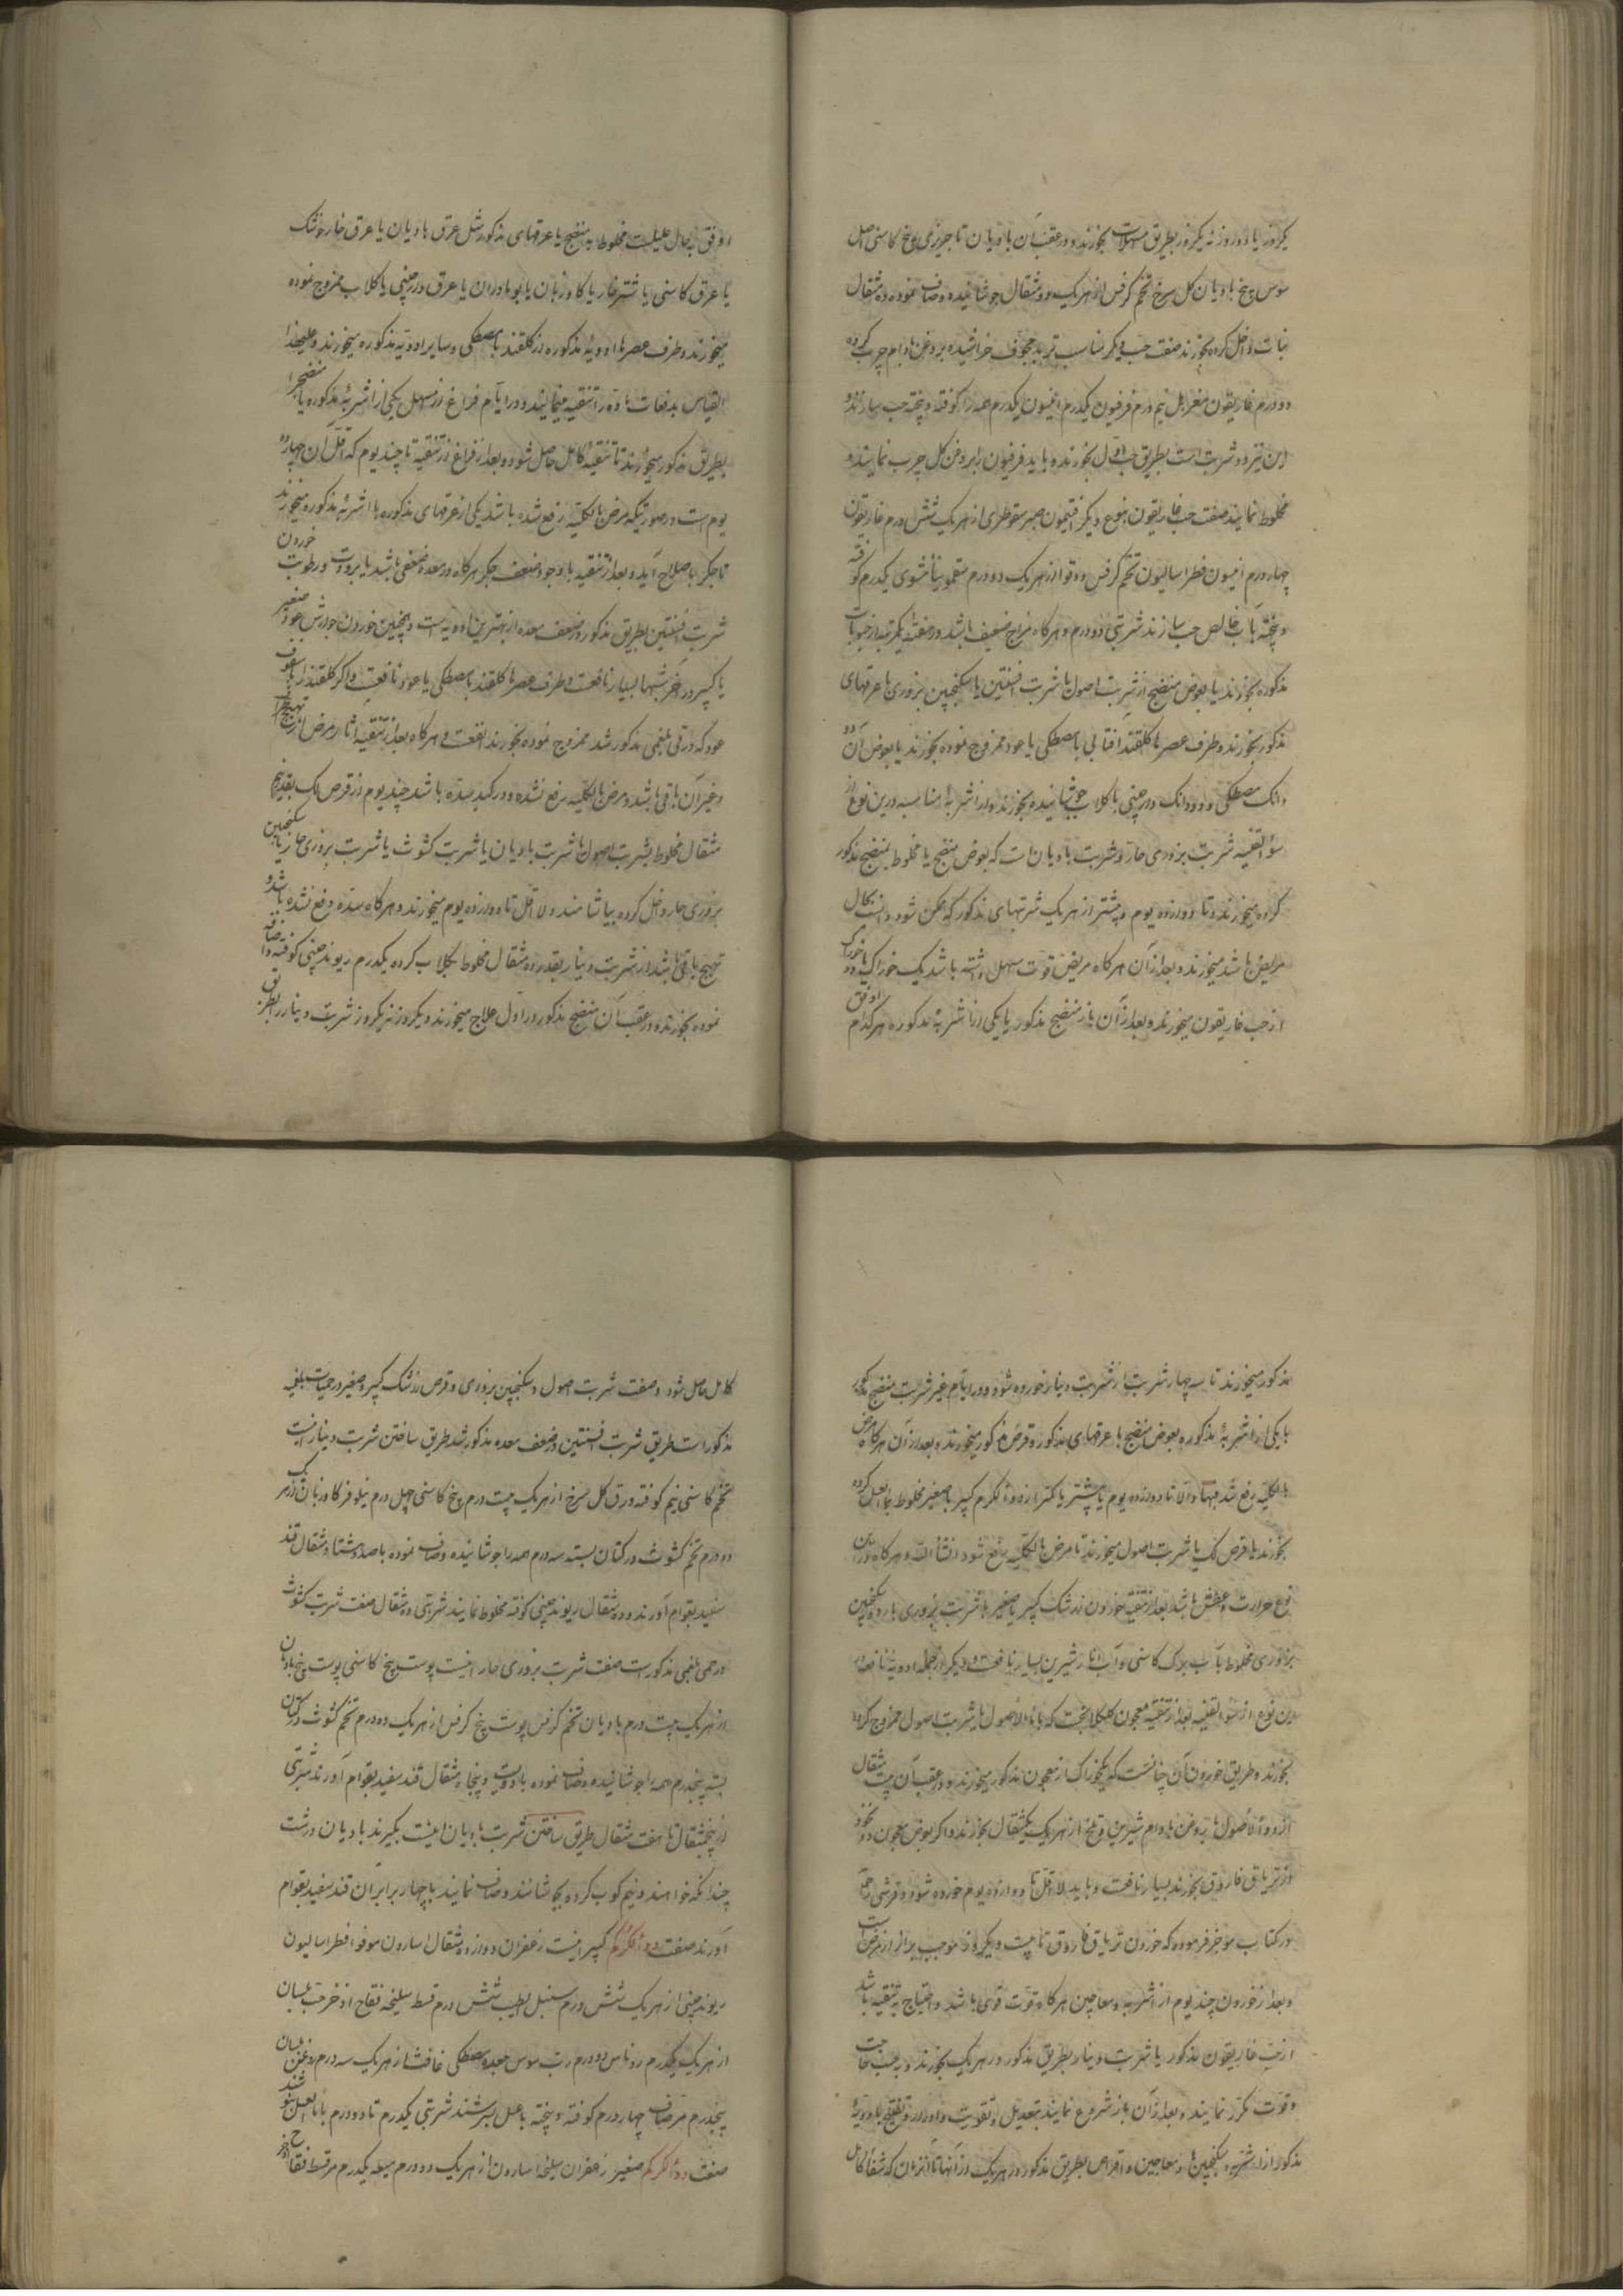 یکروز یا دو روز نه یکروز بطریق مسهلات بخورند و در عقب آن بادیان تاجریزی بیخ کاسنی اصل
سوس بیخ بادیان کل سرخ تخم کرفس از هریک دو مثقال جوشانیده و صاف نموده ده مثقال
نبات داخل کرده بخورند صفت حب دیکر مناسب تربد مجوف خراشیده بروغن بادام چرب کرده
دو درم غاریقون مغربل نیم درم فرفیون یکدرم انیسون یکدرم همه را کوفته و پخته حب سازند و
این نیز دو شربت است بطریق حب اول بخورند و باید فرفیون را بروغن کل چرب نمایند و
مخلوط نمایند صفت حب غاریقون بنوع دیکر افتیمون صبر سقوطری از هریک شش درم غاریقون
چهار درم انیسون فطراسالیون تخم کرفس دوقو از هریک دو درم سقمونیا مشوی یکدرم کوفته
و پخته بآب خالص حب سازند شربتی دو درم و هرکاه مزاج ضعیف باشد در هفته یکمرتبه از حبوبات
مذکوره بخورند یا بعوض منضج از شربت اصول یا شربت افسنتین یا سکنجبین بزوری با عرقهای
مذکور بخورند و طرف عصر با کلقند افتابی با مصطکی یا عود ممزوج نموده بخورند یا بعوض آن دو
دانک مصطکی و دو دانک دارچینی با کلاب جوشانیده بخورند و از اشربه مناسبه درین نوع از
سؤ القنیه شربت بزوری حار و شربت بادیان است که بعوض منضج یا مخلوط بمنضج مذکور
کرده میخورند و تا دوازده یوم و بیشتر از هریک شربتهای مذکور که ممکن شود و انسب بحال
مریض باشد میخورند و بعد از آن هرکاه مریض قوت مسهل داشته باشد یک خوراک یا دو خوراک
از حب غاریقون میخورند و بعد از آن باز منضج مذکور یا یکی از اشربه مذکوره هرکدام اوفق
اوفق بحال علیلست مخلوط به منضج یا عرقهای مذکور مثل عرق بادیان یا عرق خارخشک
یا عرق کاسنی یا شترخار یا کاوزبان یا بومادران یا عرق دارچینی یا کلاب ممزوج نموده
میخورند و طرف عصرها ادویه مذکوره از کلقند با مصطکی و سایر ادویه مذکوره میخورند و علیهذا
القیاس بدفعات ماده را تنقیه مینمایند و در ایام فراغ از مسهل یکی از اشربه مذکوره یا منضج را
بطریق مذکور میخورند تا تنقیه کامل حاصل شود و بعد از فراغ از تنقیه تا چند یوم که اقل آن چهارده
یوم است در صورتیکه مرض بالکلیه رفع شده باشد یکی از عرقهای مذکوره با اشربه مذکوره میخورند
تا جکر باصلاح آید و بعد از تنقیه با وجود ضعف جکر هرکاه در معده ضعفی باشد یا برودت و رطوبت خوردن
شربت افسنتین بطریق مذکور در ضعف معده از بهترین ادویه است و همچنین خوردن جوارش عود صغیر
یا کبیر در آخر شبها بسیار نافعست و طرف عصرها کلقند با مصطکی یا عود نافعست و اکر کلقند را با سفوف
عود که در قی بلغمی مذکور شد ممزوج نموده بخورند انفعست و هرکاه بعد از تنقیه آثار مرض از تهبج اطراف
و غیر آن باقی باشد و مرض بالکلیه رفع نشده و در کبد سده باشد چند یوم از قرص لک بقدر نیم
مثقال مخلوط بشربت اصول یا شربت بادیان یا شربت کشوث یا شربت بزوری حار یا سکنجبین
بزوری حار داخل کرده بیاشامند و لا اقل تا دوازده یوم میخورند و هرکاه سده رفع نشده باشد و
تهبج باقی باشد از شربت دینار بقدر ده مثقال مخلوط بکلاب کرده یکدرم ریوند چینی کوفته و اضافه
نموده بخورند و در عقب آن منضج مذکور در اول علاج میخورند و یکروز نه یکروز شربت دینار را بطریق
مذکور میخورند تا سه چهار شربت از شربت دینار خورده شود و در ایام غیر شربت منضج مذکور
یا یکی از اشربه مذکوره بعوض منضج با عرقهای مذکور و قرص مذکور میخورند و بعد از آن هرکاه مرض
بالکلیه رفع شد فبها و الا تا دوازده یوم یا بیشتر یا کمتر از دواء الکرکم کبیر یا صغیر مخلوط بماء العسل کرده
بخورند یا قرص لک یا شربت اصول میخورند تا مرض بالکلیه رفع شود انشاء الله و هرکاه درین
نوع حرارت و عطش باشد بعد از تنقیه خوردن زرشک کبیر یا صغیر با شربت بزوری بارد و سکنجبین
بزوری مخلوط بآب برک کاسنی و آب انار شیرین بسیار نافعست و دیکر از جمله ادویه نافعه در
این نوع از سؤ القنیه بعد از تنقیه معجون کلکلانجست که با ماء الاصول یا شربت اصول ممزوج کرده
بخورند و طریق خوردن آن چنانست که یکخوراک از معجون مذکور میخورند و در عقب آن بیست مثقال
از ماء الاصول با روغن بادام شیرین و تلخ از هریک یکمثقال بخورند و اکر بعوض معجون دو نخود
از تریاق فاروق بخورند بسیار نافعست و باید لا اقل تا دوازده یوم خورده شود و قرشی رحمه
در کتاب موجز فرموده که خوردن تریاق فاروق تا بیست و یکروز موجب برء از مرض است
و بعد از خوردن چند یوم از اشربه و معاجین هرکاه قوت قوی باشد و احتیاج به تنقیه باشد
از حب غاریقون مذکور یا شربت دینار بطریق مذکور در هریک بخورند و بحسب حاجت
و قوت مکرر نمایند و بعد از آن باز شروع نمایند بتعدیل و تقویت و ادرار و تفتیح بادویه
مذکور از اشربه و سکنجبین و معاجین و اقراص بطریق مذکور در هریک از آنها تا آنزمان که شفاء کامل
کامل حاصل شود و صفت شربت اصول و سکنجبین بزوری و قرص زرشک کبیر و صغیر در حمیات بلغمیه
مذکور است طریق شربت افسنتین در ضعف معده مذکور شد طریق ساختن شربت دینار اینست
تخم کاسنی نیم کوفته ورق کل سرخ از هریک بیست درم بیخ کاسنی چهل درم نیلوفر کاوزبان از هریک
ده درم تخم کشوث در کتان بسته سه درم همه را جوشانیده و صاف نموده با صد و هشتاد مثقال قند
سفید بقوام آورند و ده مثقال ریوند چینی کوفته مخلوط نمایند شربتی ده مثقال صفت شربت کشوث
در حمی بلغمی مذکور است صفت شربت بزوری حار اینست پوست بیخ کاسنی پوست بیخ بادیان
از هریک بیست درم بادیان تخم کرفس پوست بیخ کرفس از هریک ده درم تخم کشوث در کتان
بسته پنجدرم همه را جوشانیده و صاف نموده با دویست و پنجاه مثقال قند سفید بقوام آورند شربتی
از پنجمثقال تا هفت مثقال طریق ساختن شربت بادیان اینست بکیرند بادیان درشت
چندانکه خواهند و نیم کوب کرده بجوشانند و صاف نمایند با چهار برابر آن قند سفید بقوام
آورند صفت دواء الکرکم کبیر اینست زعفران دوازده مثقال اسارون مو فو فطراسالیون
ریوند چینی از هریک شش درم سنبل الطیب شش درم قسط سلیخه فقاح اذخر حب بلسان
از هریک یکدرم روناس دو درم رب سوس جعده مصطکی غافث از هریک سه درم روغن بلسان
پنجدرم مر صاف چهار درم کوفته و پخته با عسل بسرشند شربتی یکدرم تا دو درم با ماء العسل بنوشند
صفت دواء الکرکم صغیر زعفران سلیخه اسارون از هریک دو درم میعه یکدرم مر قسط فقاح اذخر